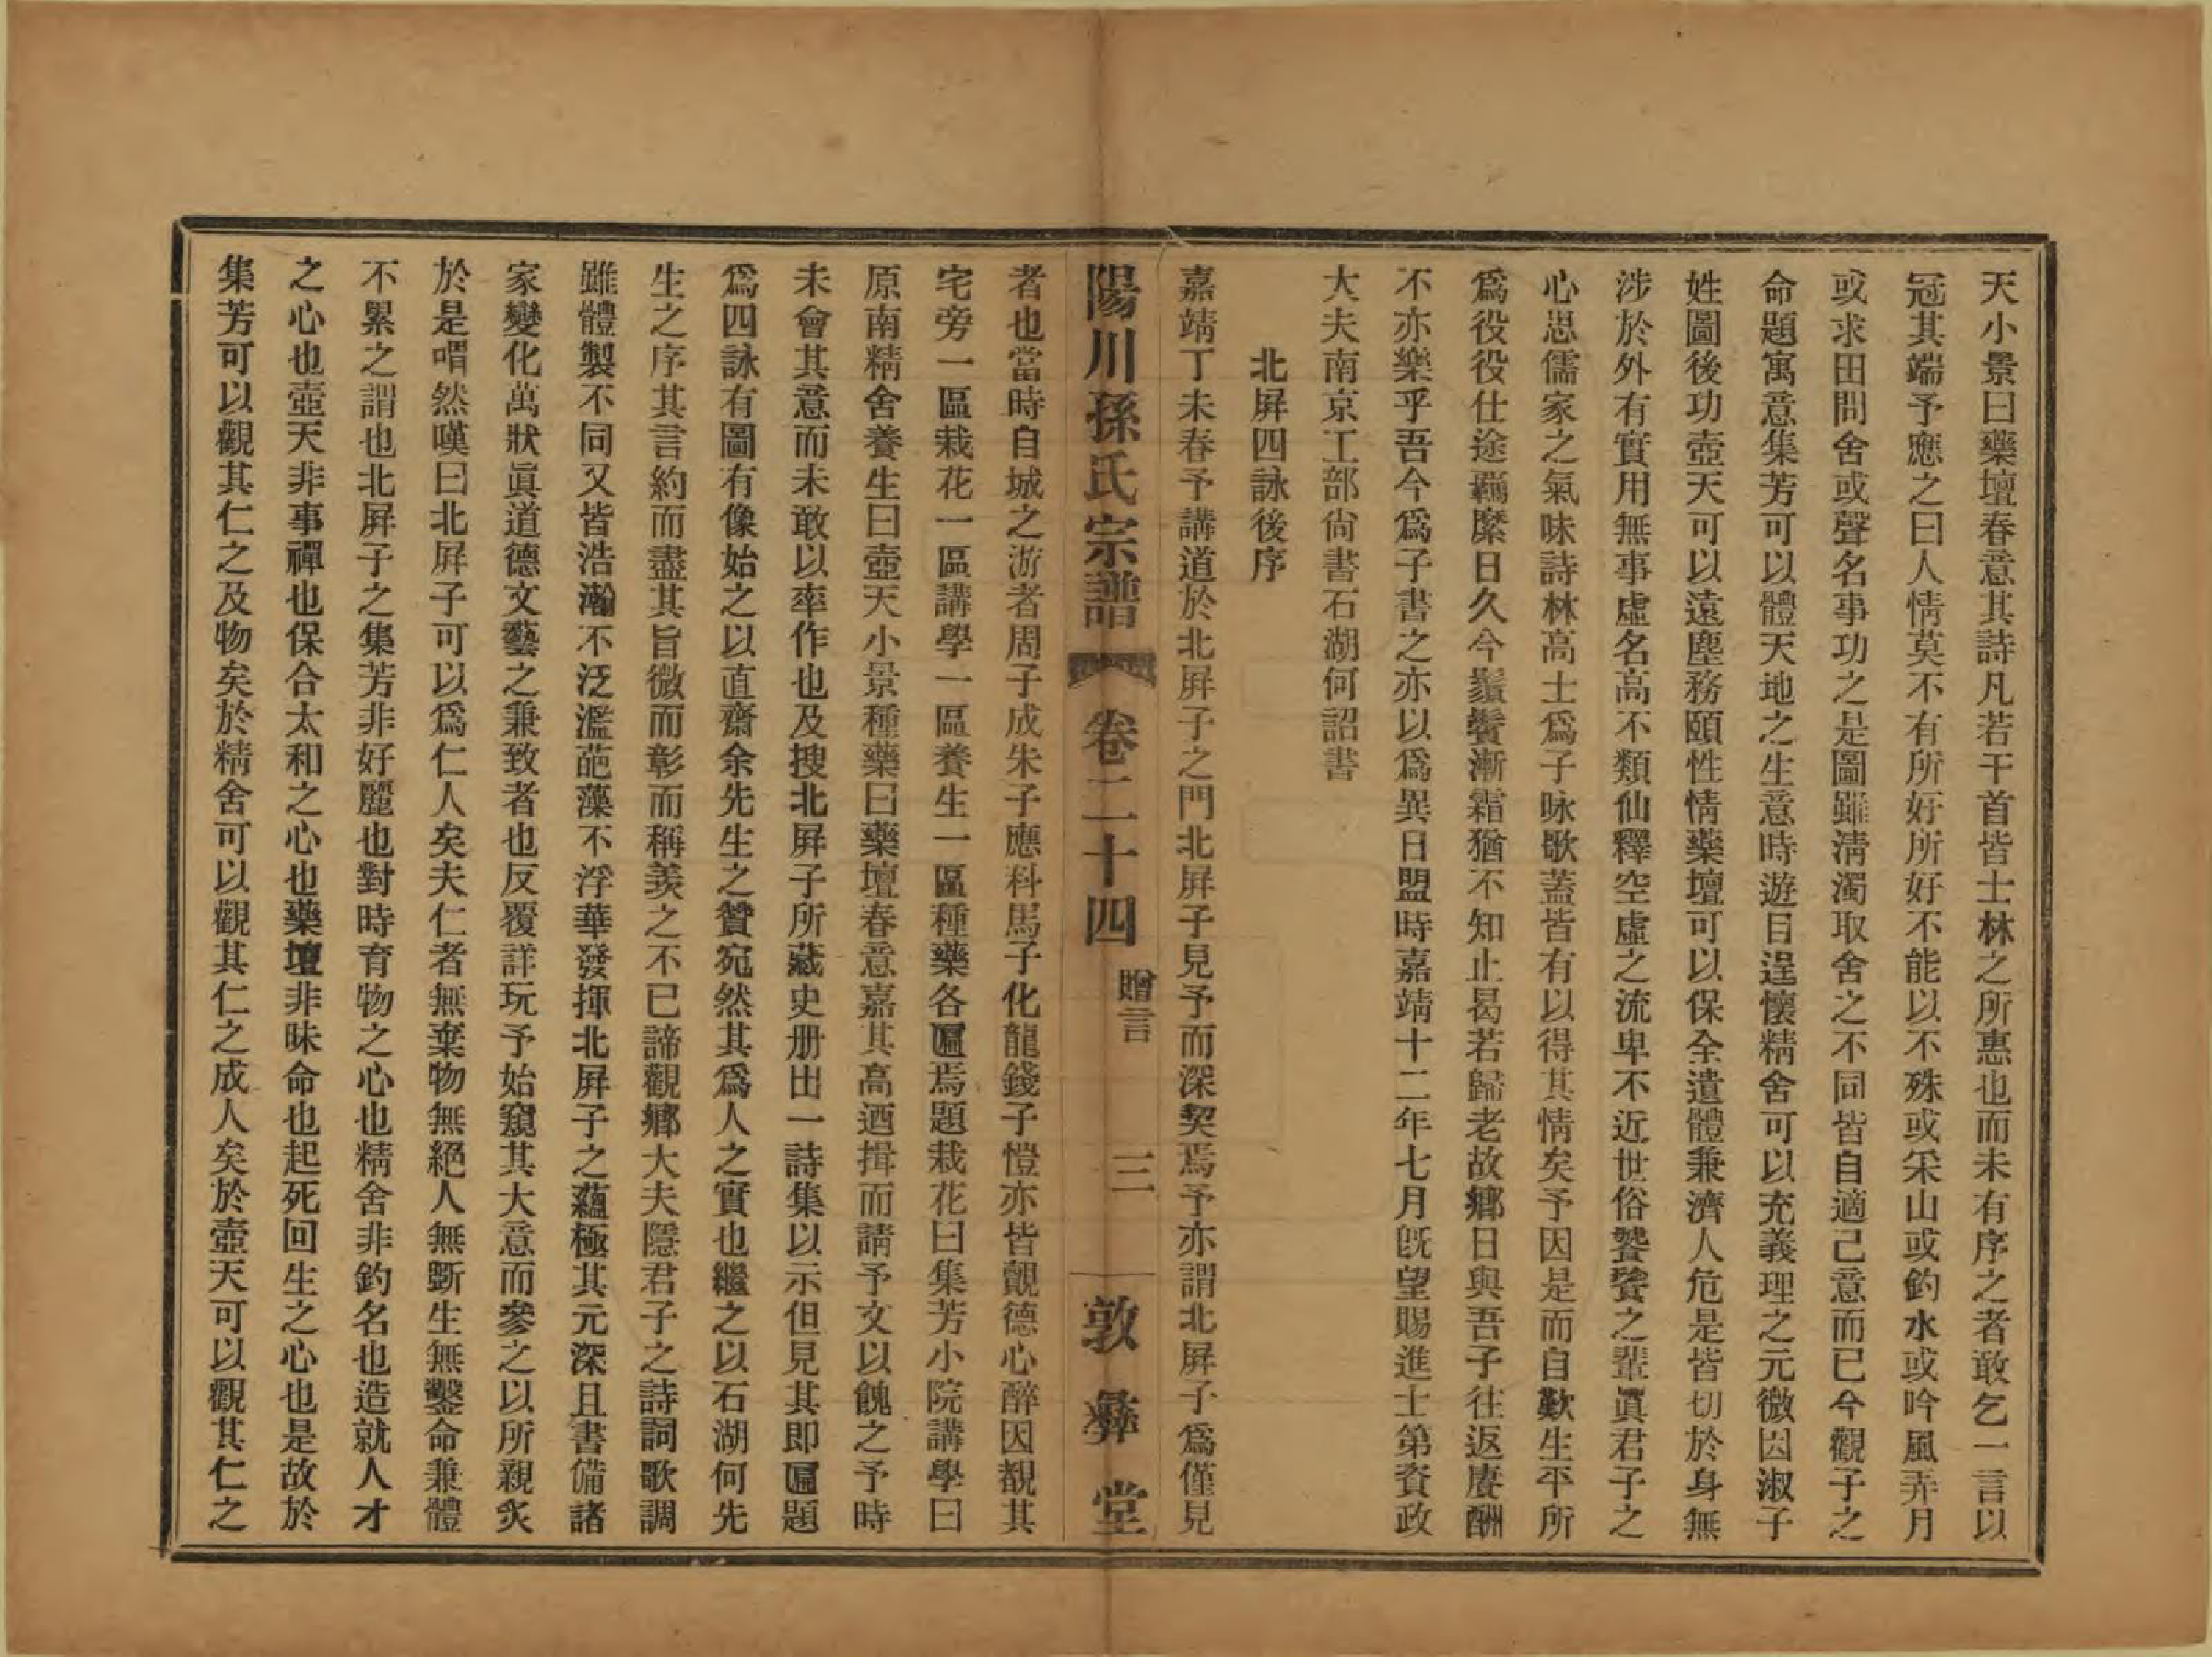 天小景曰藥壇春意其詩凡若干首皆士林之所惠也而未有序之者敢乞一言以
冠其端予應之曰人情莫不有所好所好不能以不殊或采山或釣水或吟風弄月
或求田問舍或聲名事功之是圖雖淸濁取舍之不同皆自適己意而已今觀子之
命題寓意集芳可以體天地之生意時遊目逞懷精舍可以充義理之元微因淑子
姓圖後功壺天可以遠塵務頤性情藥壇可以保全遺體兼濟人危是皆切於身無
涉於外有實用無事虛名高不類仙釋空虛之流卑不近世俗饕餮之輩眞君子之
心思儒家之氣味詩林高士爲子咏歌蓋皆有以得其情矣予因是而自歎生平所
爲役役仕途羈縻日久今鬚鬢漸霜猶不知止曷若歸老故鄉日與吾子往返賡酬
不亦樂乎吾今爲子書之亦以爲異日盟時嘉靖十二年七月旣望賜進士第資政
大夫南京工部尙書石湖何詔書
北屛四詠後序
嘉靖丁未春予講道於北屛子之門北屛子見予而深契焉予亦謂北屛子爲僅見
陽川孫氏宗譜 卷二十四 贈言 三 敦彝堂
者也當時自城之游者周子成朱子應科馬子化龍錢子愷亦皆覿德心醉因覩其
宅旁一區栽花一區講學一區養生一區種藥各匾焉題栽花曰集芳小院講學曰
原南精舍養生曰壺天小景種藥曰藥壇春意嘉其高迺揖而請予文以餽之予時
未會其意而未敢以率作也及搜北屛子所藏史册出一詩集以示但見其即匾題
爲四詠有圖有像始之以直齋余先生之贊宛然其爲人之實也繼之以石湖何先
生之序其言約而盡其旨微而彰而稱羨之不已諦觀鄉大夫隱君子之詩詞歌調
雖體製不同又皆浩瀚不泛濫葩藻不浮華發揮北屛子之蘊極其元深且書備諸
家變化萬狀眞道德文藝之兼致者也反覆詳玩予始窺其大意而參之以所親炙
於是喟然嘆曰北屛子可以爲仁人矣夫仁者無棄物無絕人無斷生無鑿命兼體
不累之謂也北屛子之集芳非好麗也對時育物之心也精舍非釣名也造就人才
之心也壺天非事禪也保合太和之心也藥壇非昧命也起死回生之心也是故於
集芳可以觀其仁之及物矣於精舍可以觀其仁之成人矣於壺天可以觀其仁之